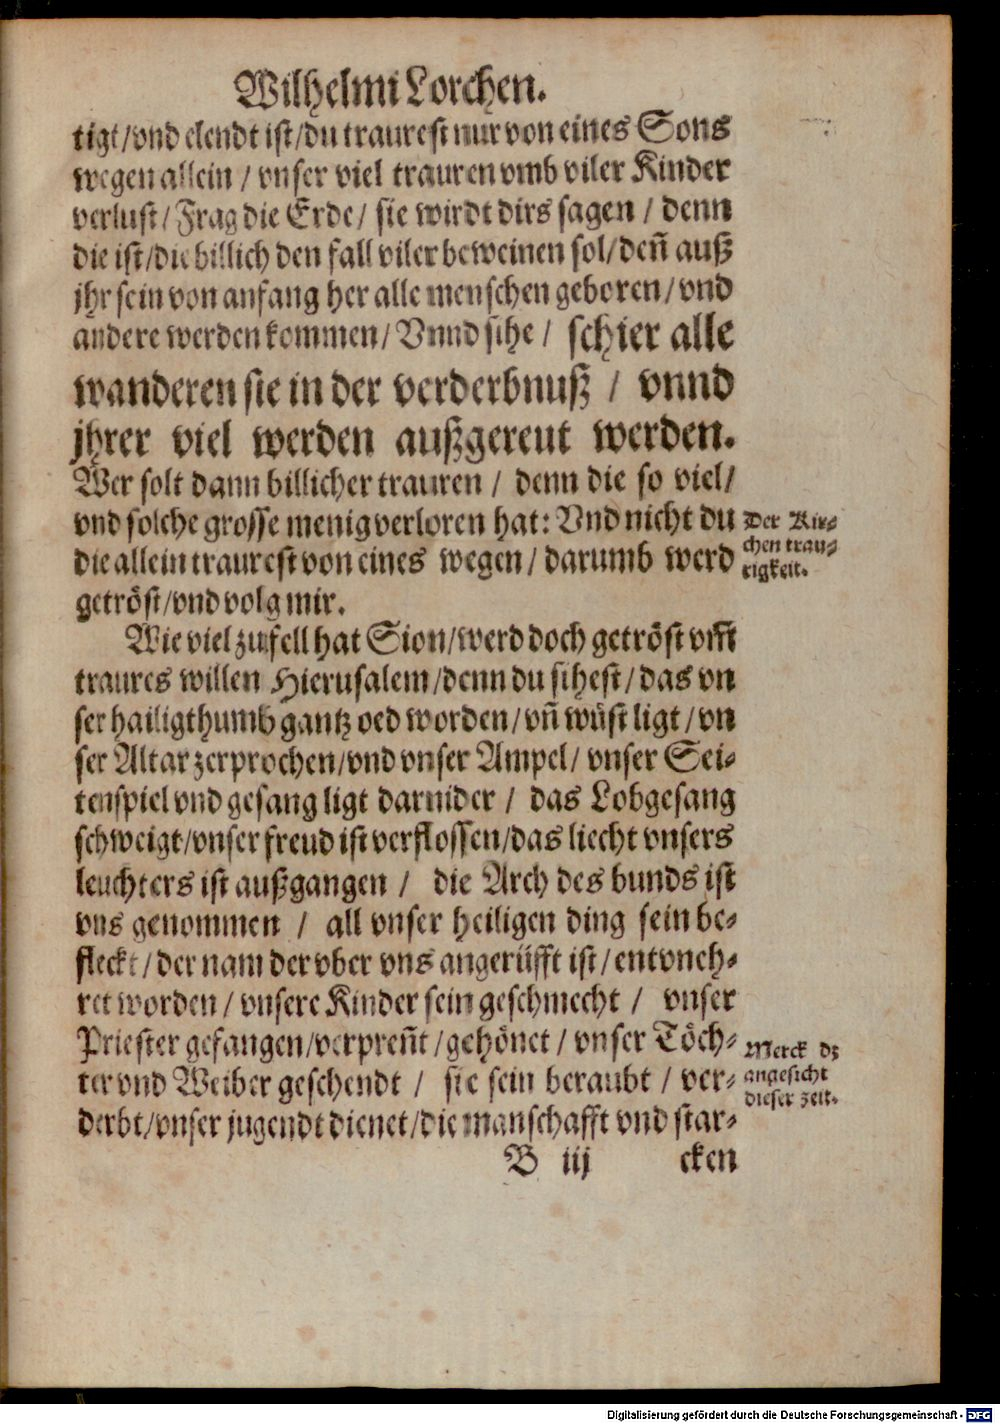 Wilhelmi Lorchen.
tigt/vnd elendt ist/du traurest nur von eines Sons
wegen allein / vnser viel trauren vmb viler Kinder
verlust/ Frag die Erde/ sie wirdt dirs sagen / denn
die ist/die billich den fall viler beweinen sol/deñ auß
jhr sein von anfang her alle menschen geboren/ vnd
andere werden kommen/ Vnnd sihe / schier alle
wanderen sie in der verderbnuß / vnnd
jhrer viel werden außgereut werden.
Wer solt dann billicher trauren / denn die so viel/
vnd solche grosse menig verloren hat: Vnd nicht du
die allein traurest von eines wegen/ darumb werd
getröst/vnd volg mir.
Der Kir-
chen trau-
rigkeit.
Wie viel zufell hat Sion/werd doch getröst vm̃
traures willen Hierusalem/denn du sihest/das vn
ser hailigthumb gantz oed worden/vñ wüst ligt/vn
ser Altar zerprochen/vnd vnser Ampel/ vnser Sei-
tenspiel vnd gesang ligt darnider / das Lobgesang
schweigt/vnser freud ist verflossen/das liecht vnsers
leuchters ist außgangen / die Arch des bunds ist
vns genommen / all vnser heiligen ding sein be-
fleckt/der nam der vber vns angerüfft ist/entvneh-
ret worden/ vnsere Kinder sein geschmecht / vnser
Priester gefangen/verpreñt/gehönet/ vnser Töch-
ter vnd Weiber geschendt / sie sein beraubt / ver-
derbt/vnser jugendt dienet/die manschafft vnd star-
Merck dz
angesicht
dieser zeit.
B iij cken
Digitalisierung gefördert durch die Deutsche Forschungsgemeinschaft - DFG